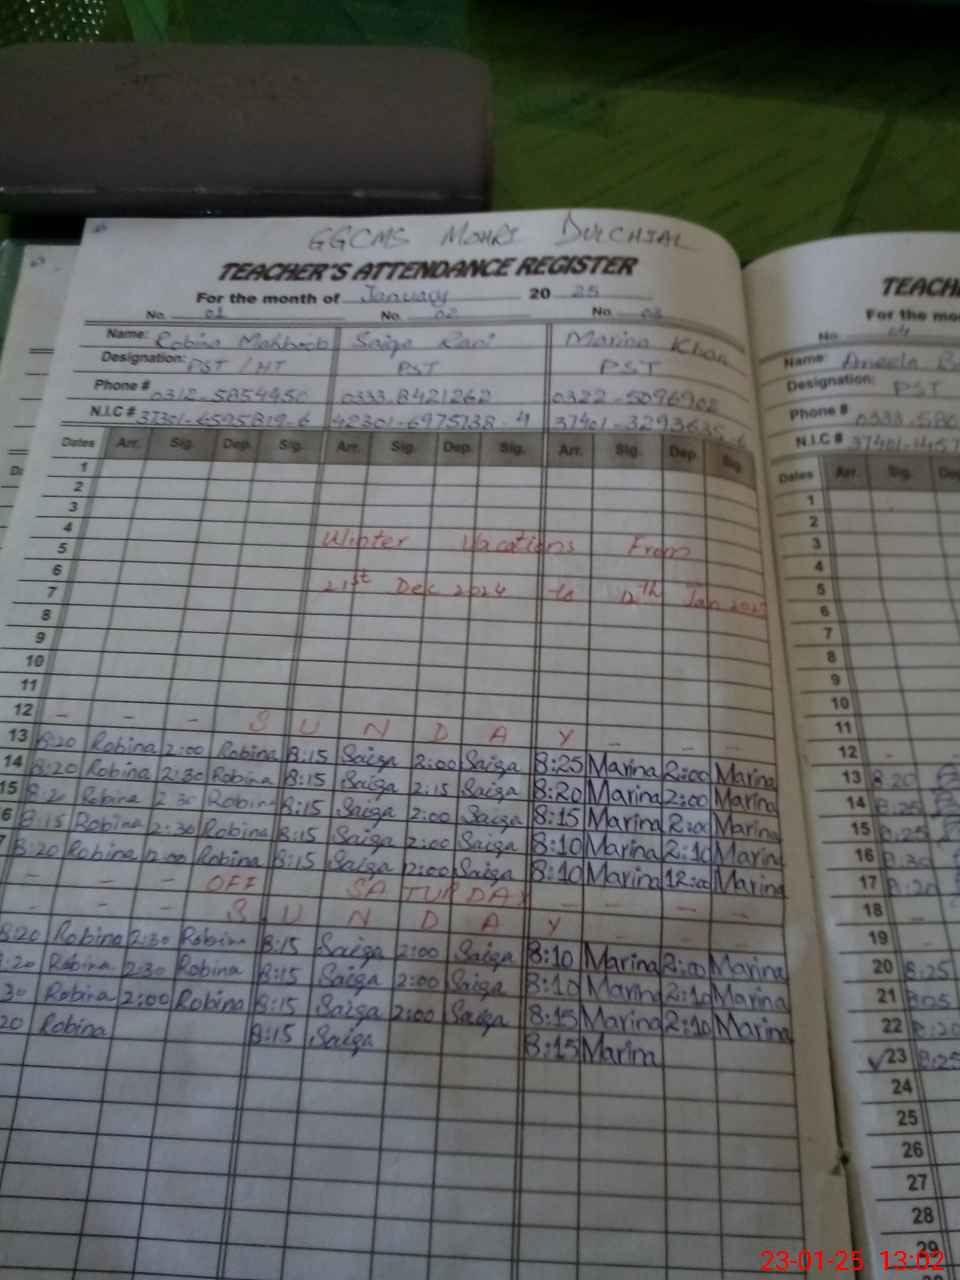 GGCMS MOHRI DULCHIAL
TEACHER'S ATTENDANCE REGISTER
For the month of January 2025
No. 01 No. 02 No. 03
Name: Robina Mahboob Saiqa Rani Marina Khan
Designation: PST / HT PST PST
Phone # 0312.5854450 0333.8421262 0322-5096902
N.I.C # 37301-6595819-6 42301-6975138-4 37401-3293635-
Dates Arr. Sig. Dep. Sig. Arr. Sig. Dep. Sig. Arr. Sig. Dep. Sig.
1
2
3
4
5 Winter Vacations From
6
7 21st Dec 2024 to 12th Jan 2025
8
9
10
11
12 - - - S U N D A Y - - -
13 8:20 Robina 2:00 Robina 8:15 Saiqa 2:00 Saiqa 8:25 Marina 2:00 Marina
14 8:20 Robina 2:30 Robina 8:15 Saiqa 2:15 Saiqa 8:20 Marina 2:00 Marina
15 8:20 Robina 2:30 Robina 8:15 Saiqa 2:00 Saiqa 8:15 Marina 2:00 Marina
6 8:15 Robina 2:30 Robina 8:15 Saiqa 2:00 Saiqa 8:10 Marina 2:10 Marina
7 8:20 Robina 12:00 Robina 8:15 Saiqa 2:00 Saiqa 8:10 Marina 12:00 Marina
- - - OFF SATURDAY - - - -
- - - S U N D A Y - -
8:20 Robina 2:30 Robina 8:15 Saiqa 2:00 Saiqa 8:10 Marina 2:00 Marina
:20 Robina 2:30 Robina 8:15 Saiqa 2:00 Saiqa 8:10 Marina 2:10 Marina
30 Robina 2:00 Robina 8:15 Saiqa 2:00 Saiqa 8:15 Marina 2:10 Marina
20 Robina 8:15 Saiqa 8:15 Marina
TEACH
For the mo
No. 04
Name: Aneela B
Designation: PST
Phone # 0333-580
N.I.C # 37401-1457
Dates Arr. Sig. Dep
1
2
3
4
5
6
7
8
9
10
11
12 -
13 8:20
14 8:25
15 8:25
16 8:30
17 8:20
18 -
19
20 8:25
21 8:05
22 8:20
✓23 8:25
24
25
26
27
28
29
23-01-25 13:02